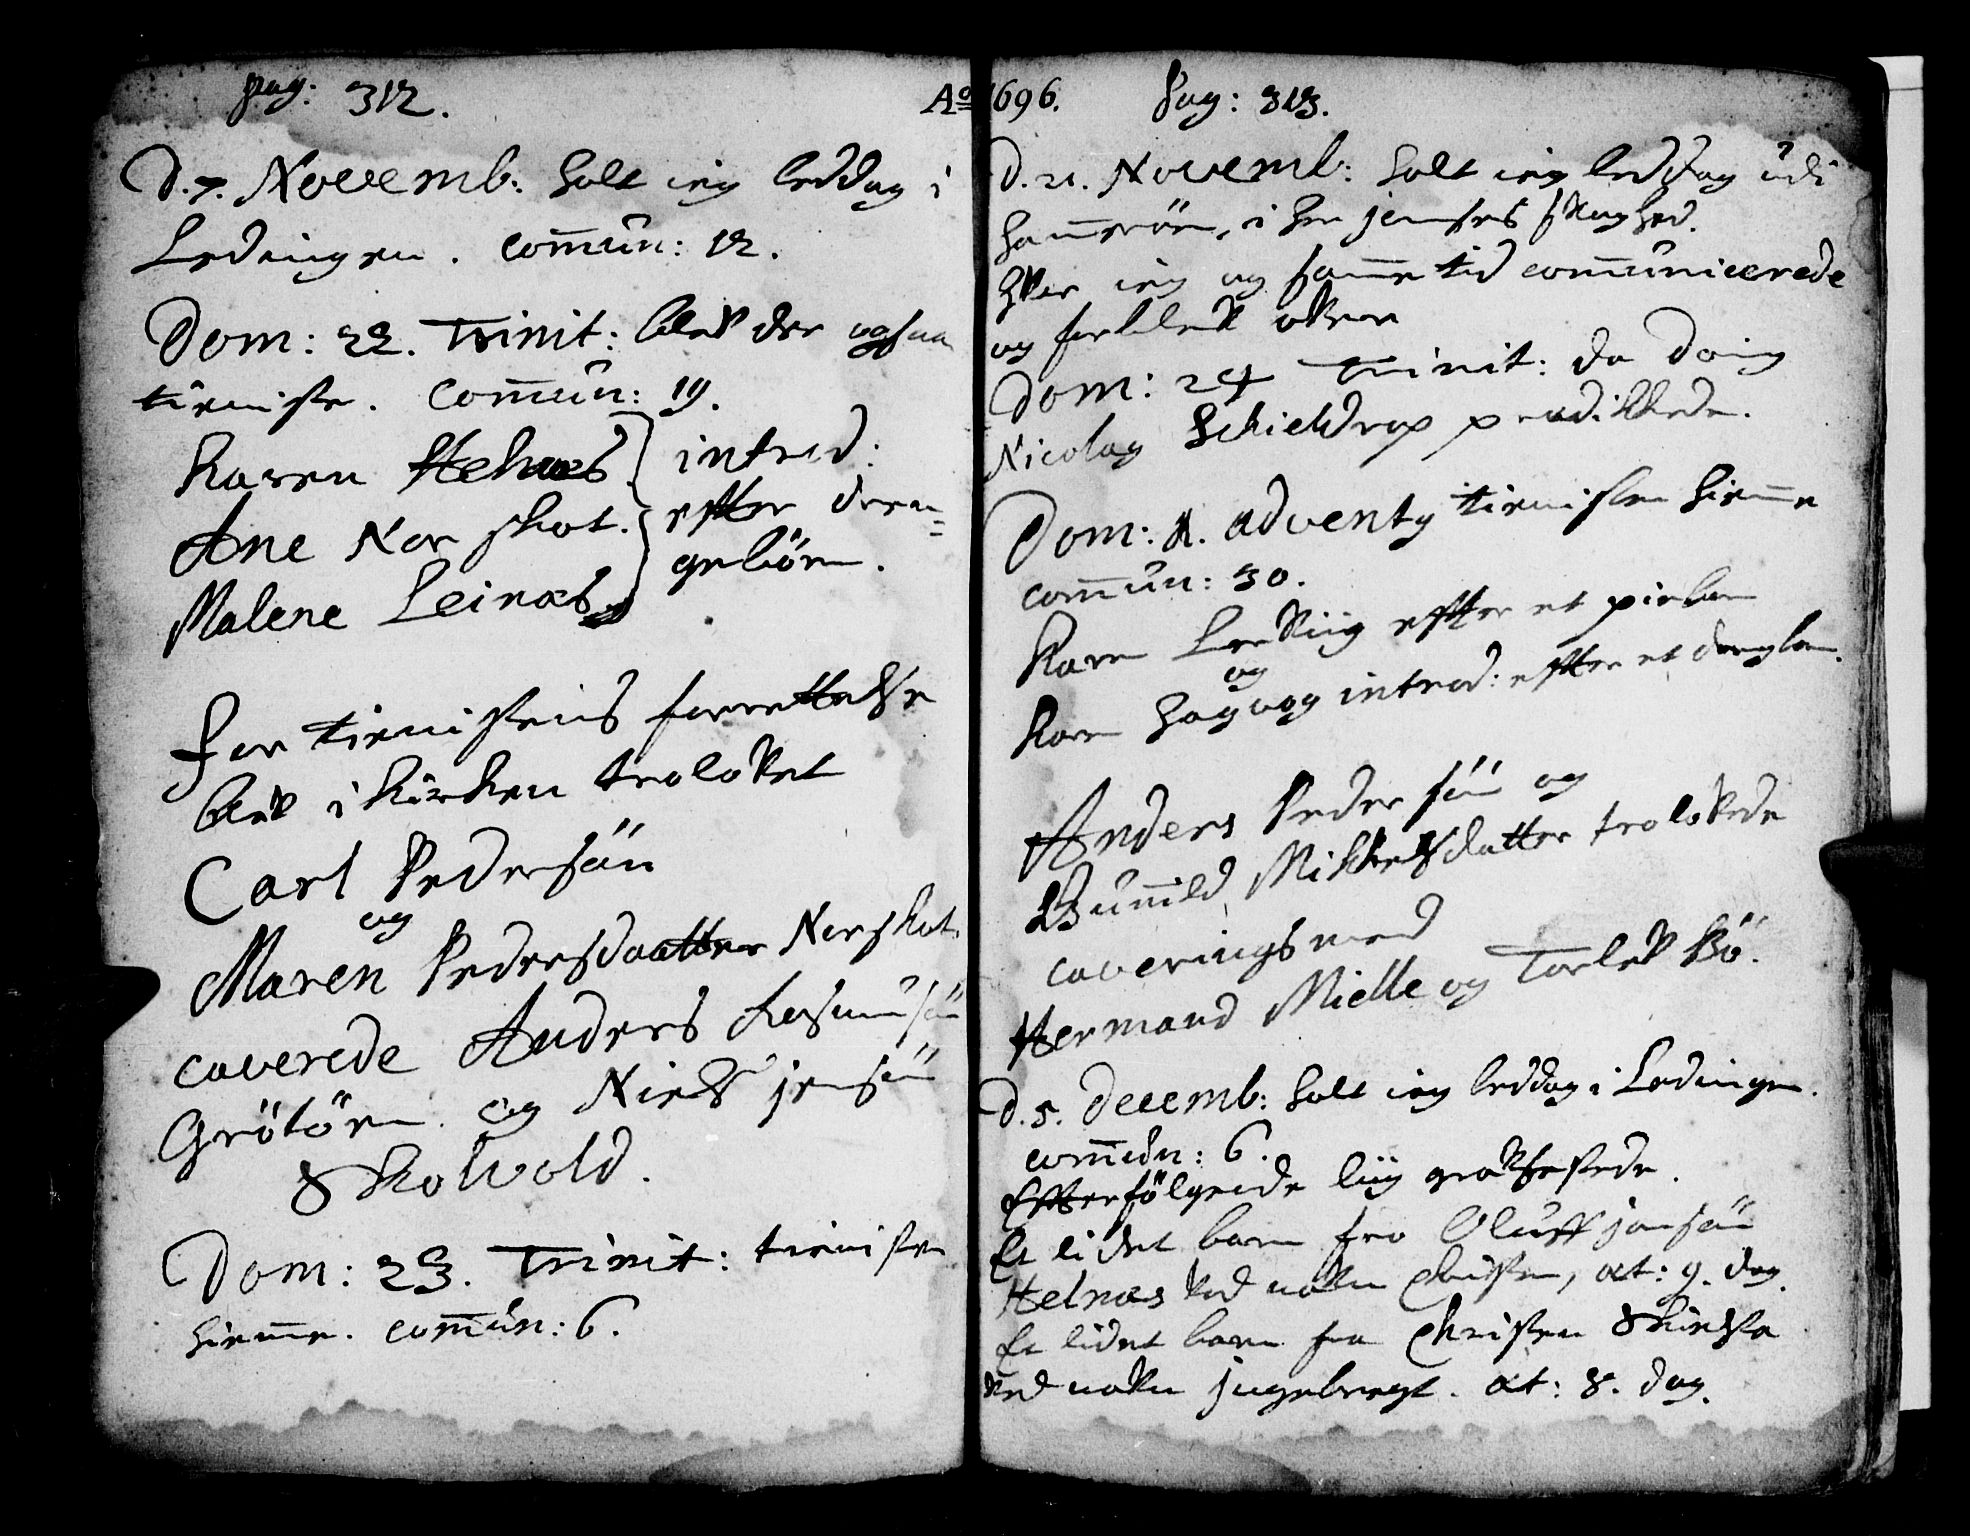 Pag: 312.
D. 7. Novemb: holt ieg beddag i
Lødingen. com̄un: 12.
Dom: 22. Trinit: blef der ogsaa
tieniste. Com̄un: 19.
Karen Helnæs
Ane Nor skot.
Malene Leinæs
introd:
efter dren-
gebörn.
For tienistens forrettelse
blef i kirken trolofvet
Carl Pedersön
og
Maren Pedersdaatter Norskot.
caverede Anders Rasmusön
Grötöen og Niels jensön
Skolvold.
Dom: 23. Trinit: tienisten
hiem̄e. com̄un: 6.
Ao 1696. Pag: 313.
D. 21. Novemb: holt ieg beddag udi
Ham̄eröen, i her jenses
ieg og sam̄e tid com̄unicerede
og forblef
Dom: 24 Trinit: da
Nicolay Schieldrop prædikkede.
Dom: 1. adventy tienisten hiem̄e
com̄un: 30.
Karen efter et piebarn
og
Karen introd: efter et drengbarn.
Anders Pedersön og
Gunild Mikkelsdatter trolofvede
caveringsmend
Hermand Mielle og Torlef Bö.
D. 5. Decemb: holt ieg beddag i Lødingen.
com̄un: 6.
Efterfölgende liig grafsestede.
Et lidet barn fra Oluff jonsön
Helnæs ved nafn Christen, æt: 9. dag.
Et lidet barn fra Christen
ved nafn jngebregt. æt: 8. dag.